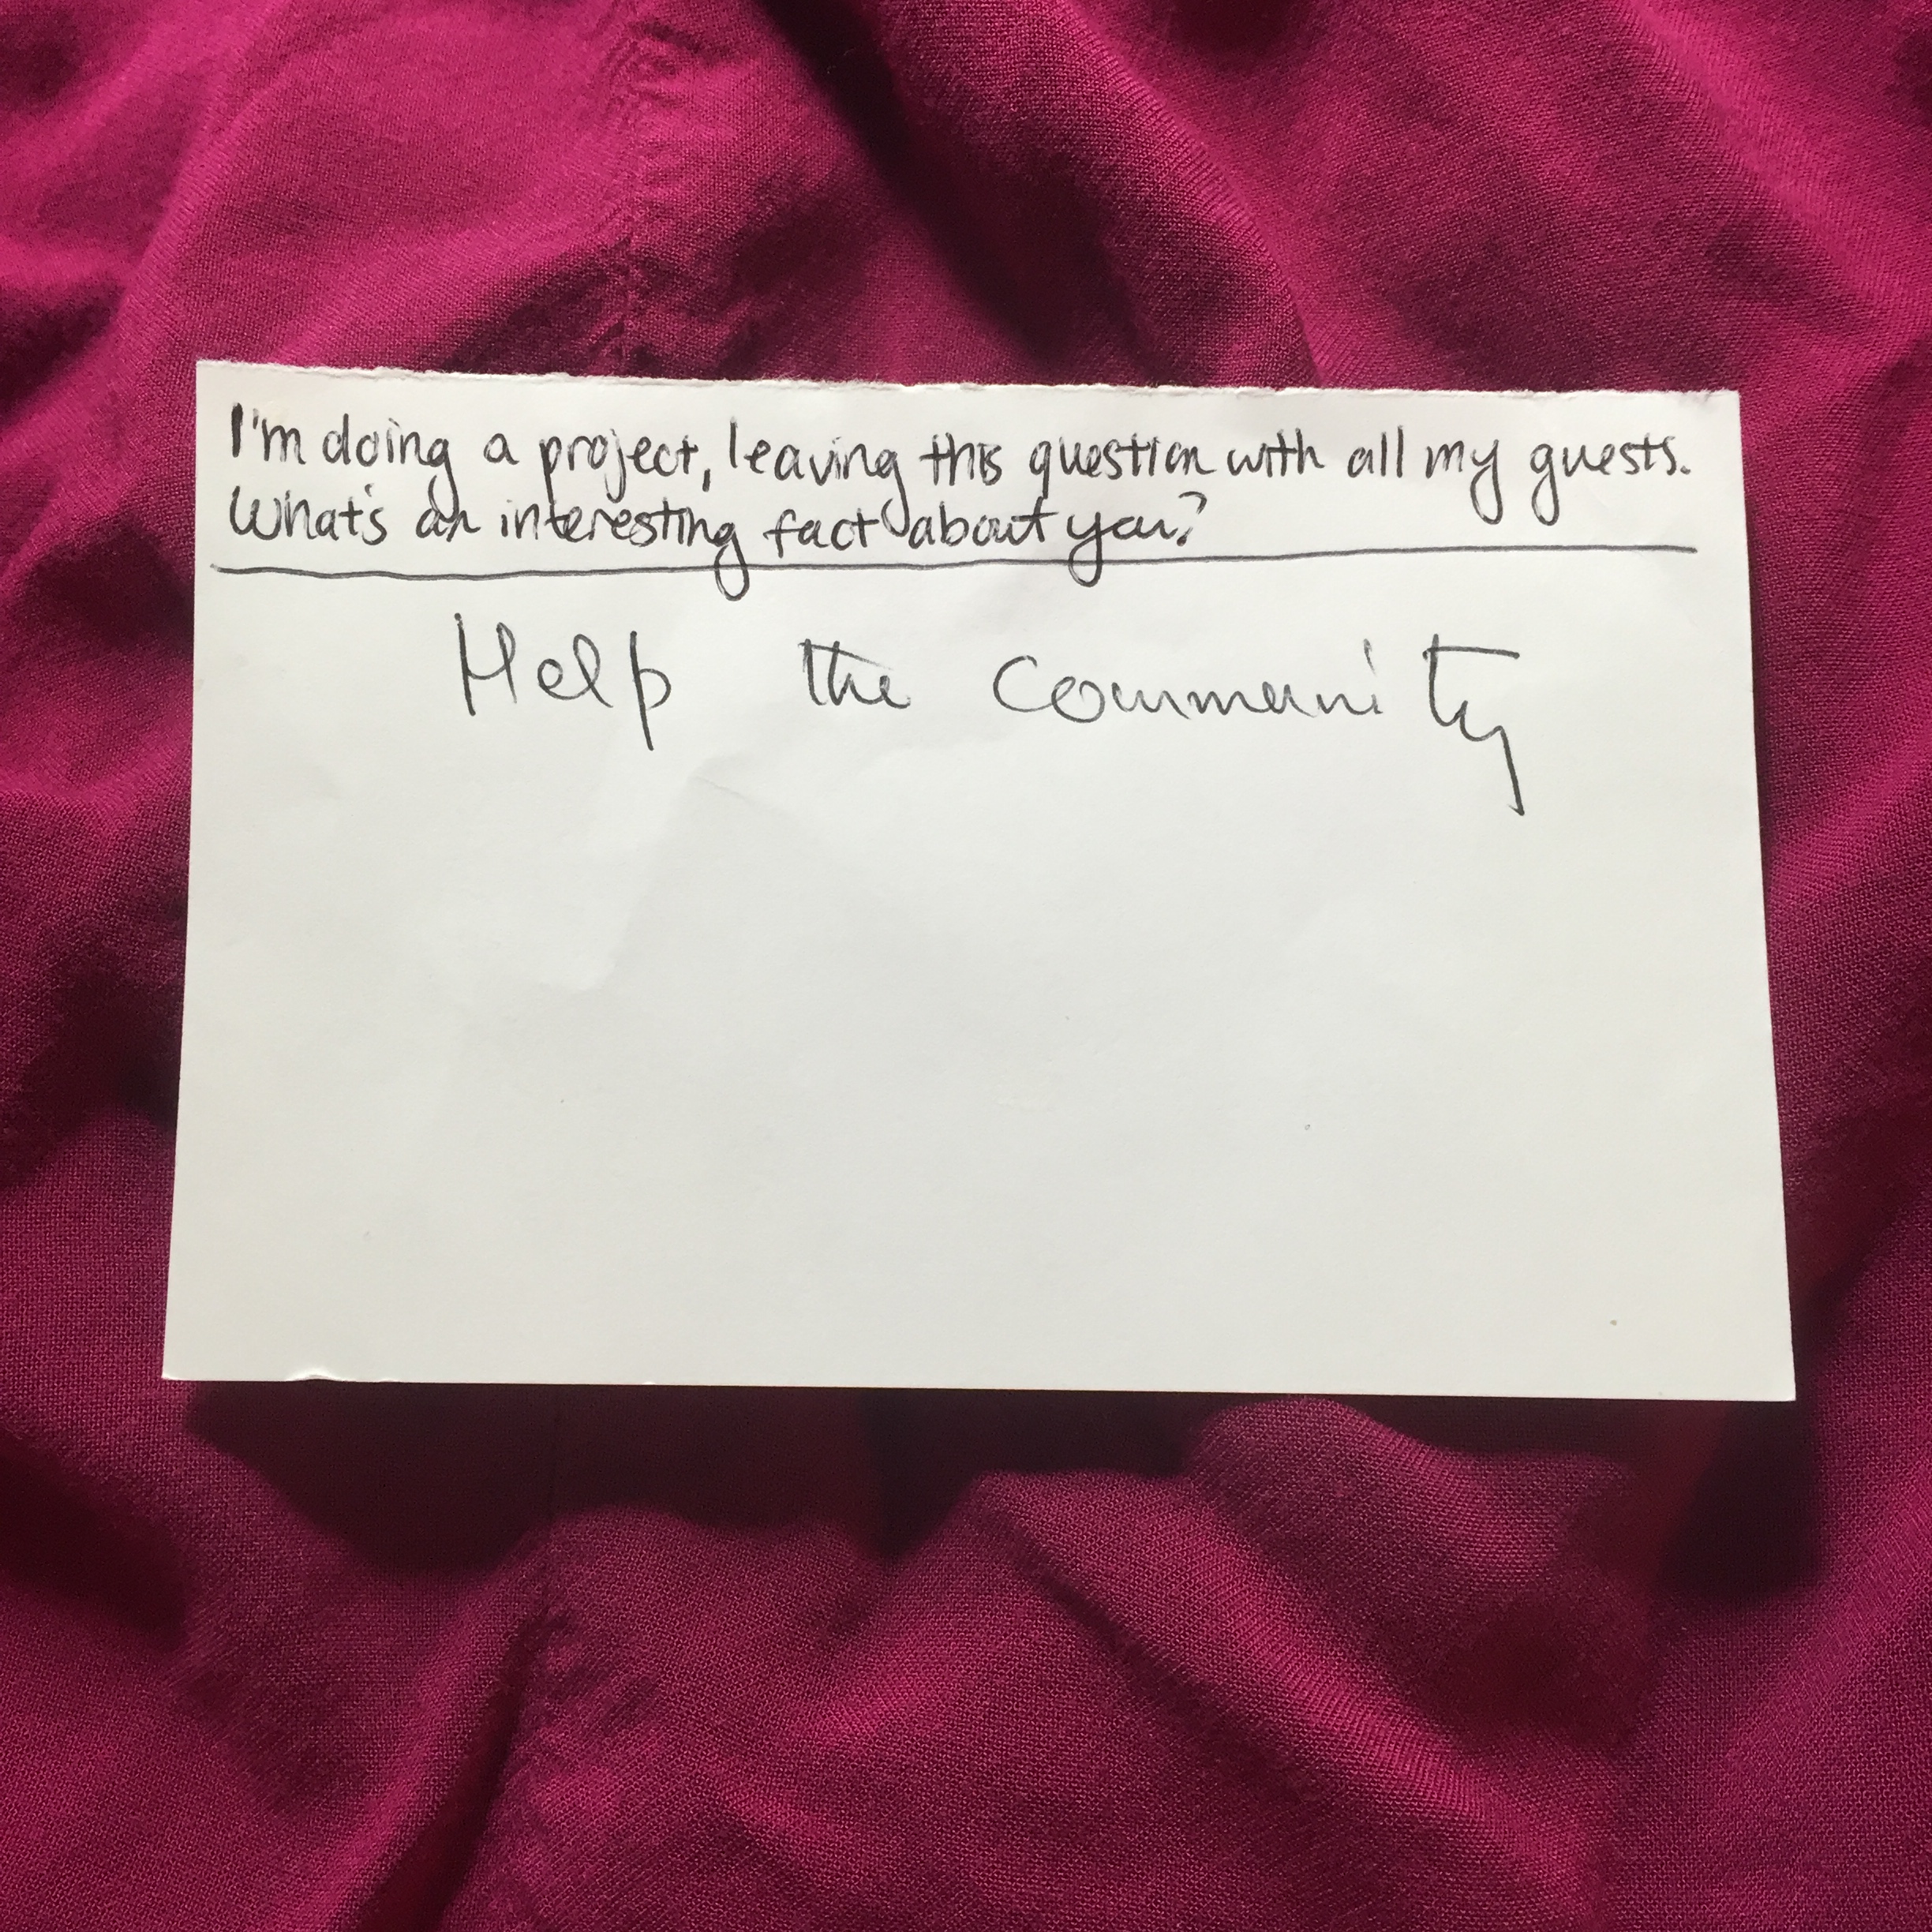 I'm doing a project, leaving this question with all my guests.
What's an interesting fact about you?
Help the community